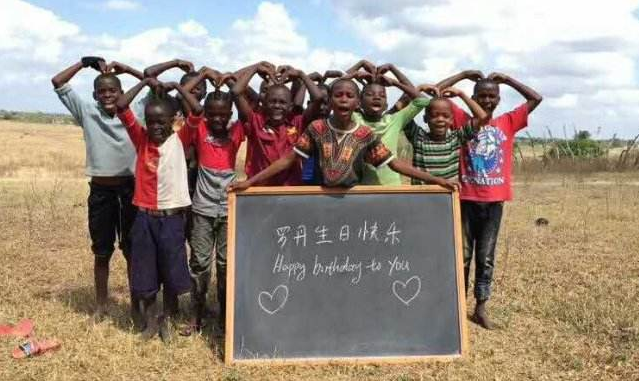 罗丹生日快乐
Happy birthday to you
NATION